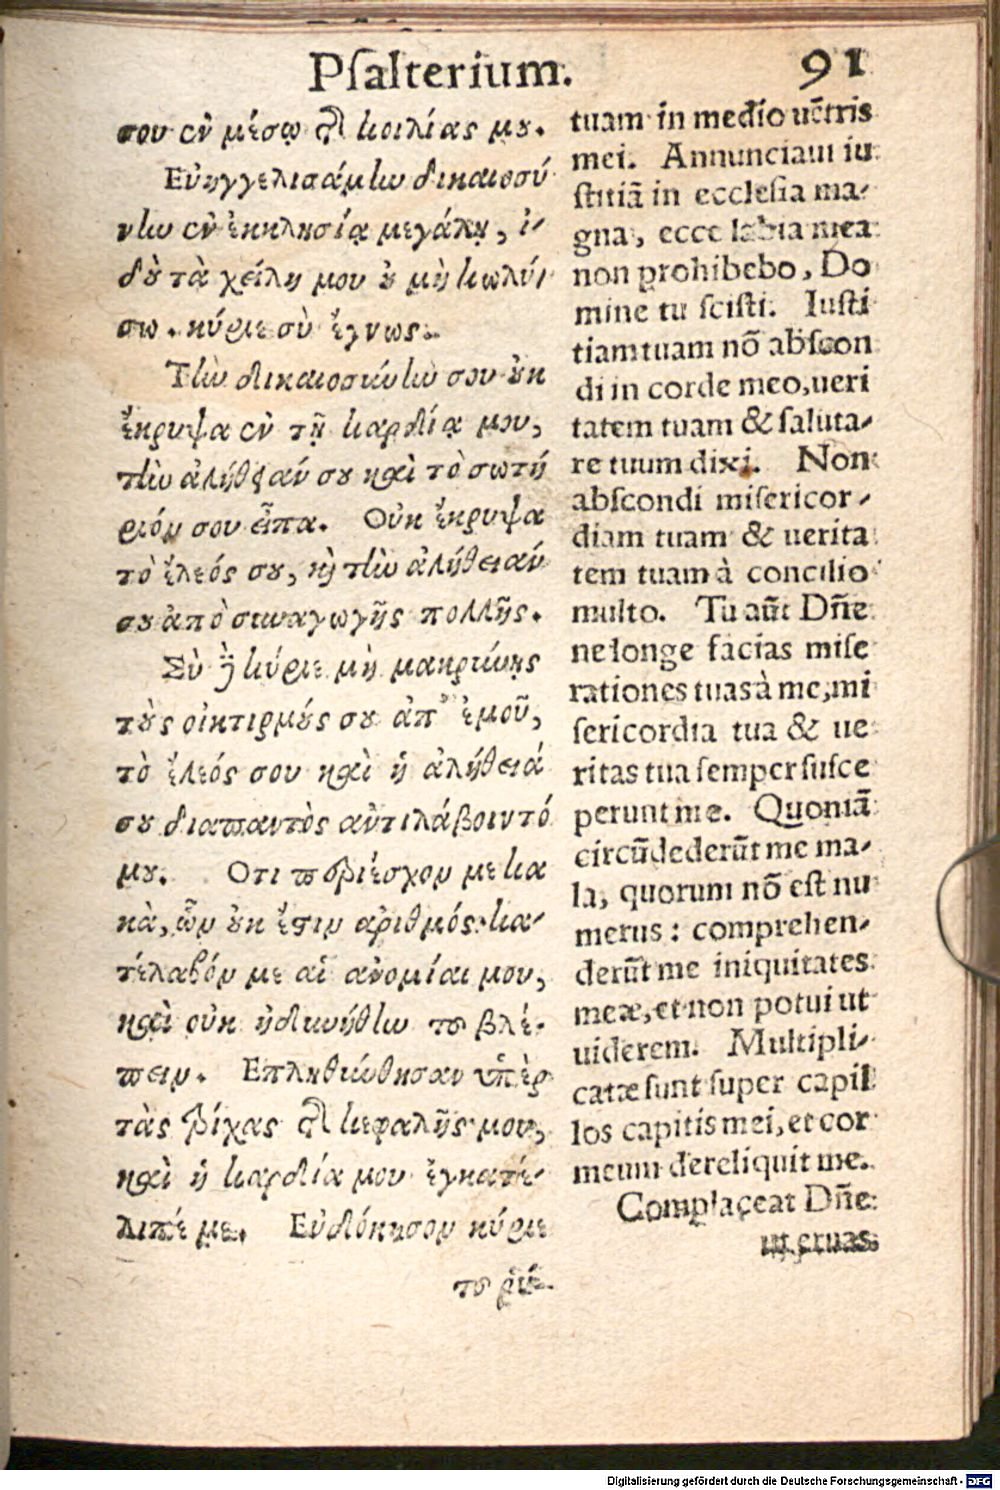 Psalterium. 91
σου ἐν μέσῳ τῆς κοιλίας μου.
Εὐηγγελισάμην δικαιοσύ
νην ἐν ἐκκλησίᾳ μεγάλῃ, ἰ-
δοὺ τὰ χείλη μου οὐ μὴ κωλύ-
σω. κύριε σὺ ἔγνως.
Τὴν δικαιοσύνην σου οὐκ
ἔκρυψα ἐν τῇ καρδίᾳ μου,
τὴν ἀλήθειάν σου καὶ τὸ σωτή
ριόν σου εἶπα. Οὐκ ἔκρυψα
τὸ ἔλεός σου, καὶ τὴν ἀλήθειαν
σου ἀπὸ συναγωγῆς πολλῆς.
Σὺ δὲ κύριε μὴ μακρύνῃς
τοὺς οἰκτιρμούς σου ἀπ' ἐμοῦ,
τὸ ἔλεός σου καὶ ἡ ἀλήθειά
σου διαπαντὸς ἀντιλάβοιντό
μου. Οτι περιέσχον με κα
κὰ, ὧν οὐκ ἔστιν ἀριθμός· κα-
τέλαβόν με αἱ ἀνομίαι μου,
καὶ οὐκ ἠδυνήθην τοῦ βλέ-
πειν. Επληθύνθησαν ὑπὲρ
τὰς τρίχας τῆς κεφαλῆς μου,
καὶ ἡ καρδία μου ἐγκατέ-
λιπέ με. Εὐδόκησον κύριε
τοῦ ῥύ-
tuam in medio uẽtris
mei. Annunciaui iu
stitiã in ecclesia ma-
gna, ecce labia mea
non prohibebo, Do
mine tu scisti. Iusti
tiam tuam nõ abscon
di in corde meo, ueri
tatem tuam & saluta-
re tuum dixi. Non
abscondi misericor-
diam tuam & uerita
tem tuam à concilio
multo. Tu aũt Dñe
ne longe facias mise
rationes tuas à me, mi
sericordia tua & ue
ritas tua semper susce
perunt me. Quoniã
circũdederũt me ma-
la, quorum nõ est nu
merus: comprehen-
derũt me iniquitates
meæ, et non potui ut
uiderem. Multipli-
catæ sunt super capil
los capitis mei, et cor
meum dereliquit me.
Complaceat Dñe
ut eruas
Digitalisierung gefördert durch die Deutsche Forschungsgemeinschaft - DFG